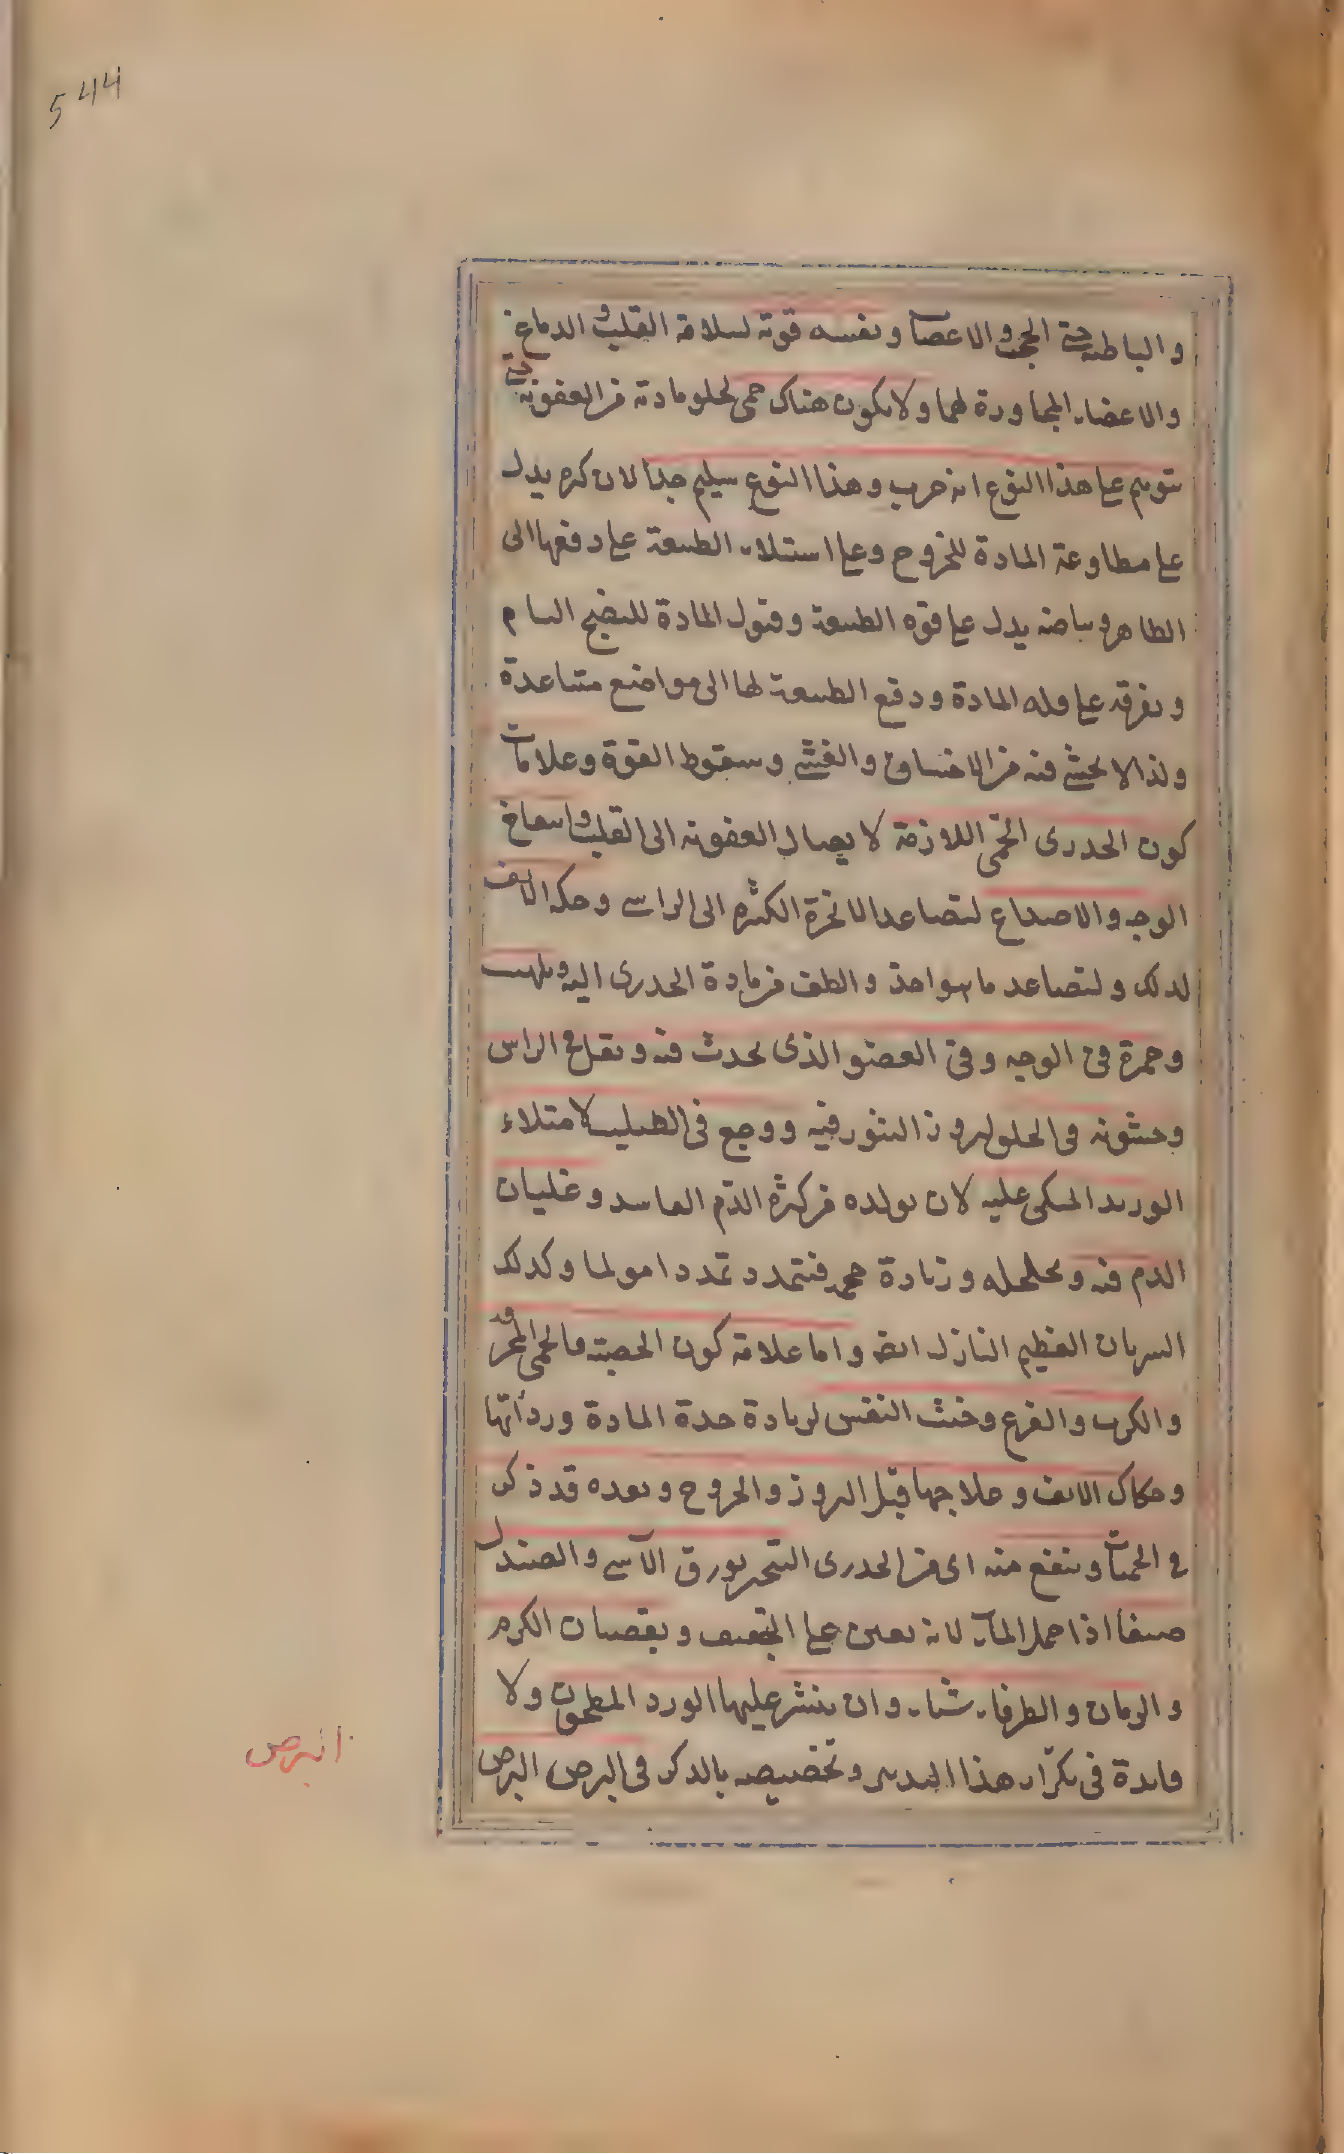 544
والباطنه حتى الحجب والاعصاب ونفسه قوته لسلامة القلب والدماغ
والاعضاء المجاورة لهما ولا يكون هناك حمى لخلو مادته من العفونة حتى
يتوهم على هذا النوع انه جرب وهذا النوع سليم جدا لان كبره يدل
على مطاوعة المادة للخروج وعلى استيلاء الطبيعة على دفعها الى
الظاهر وبياضه يدل على قوه الطبيعة وقبول المادة للنضج التام
وتفرقه على قله المادة ودفع الطبيعة لها الى مواضع متباعدة
ولذا لا يخشى فيه من الاختناق والغشي وسقوط القوة وعلامات
كون الجدرى الحمّى اللازمة لايصال العفونه الى القلب وانتفاخ
الوجه والاصداغ لتصاعد الابخرة الكثيره الى الراس وحكه الانف
لذلك ولتصاعد ما هو احد والطف من مادة الجدرى اليه وتلهب
وحمرة في الوجه وفي العضو الذى يحدث فيه وثقل في الراس
وخشونه في الحلق لبروز البثور فيه ووجع في الصلب لامتلاء
الوريد المتكى عليه لان تولده من كثرة الدّم الفاسد وغليان
الدم فيه وتخلخله وزيادة حجمه فيتمدد تمددا مولما وكذلك
الشريان العظيم النازل ايضا واما علامة كون الحصبة فالحمى المحرقه
والكرب والفزع وخبث النفس لزيادة حدة المادة ورداءتها
وحكاك الانف وعلاجها قبل البروز والخروج وبعده قد ذكر
في الحميات وينفع منه اى من الجدرى التبخر بورق الآس والصندل
صيفا اذا حمل الماء لانه يعين على التجفيف وبقضبان الكرم
والرمان والطرفاء شتاء وان ينثر عليها الورد المطحون ولا
فايدة في تكرار هذا التدبير وتخصيصه بالذكر في البرص البرص
البرص